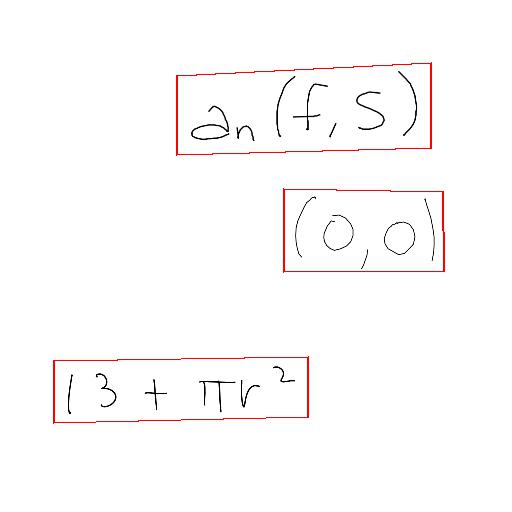 a_n(f, S)
(0, 0)
13 + πr²